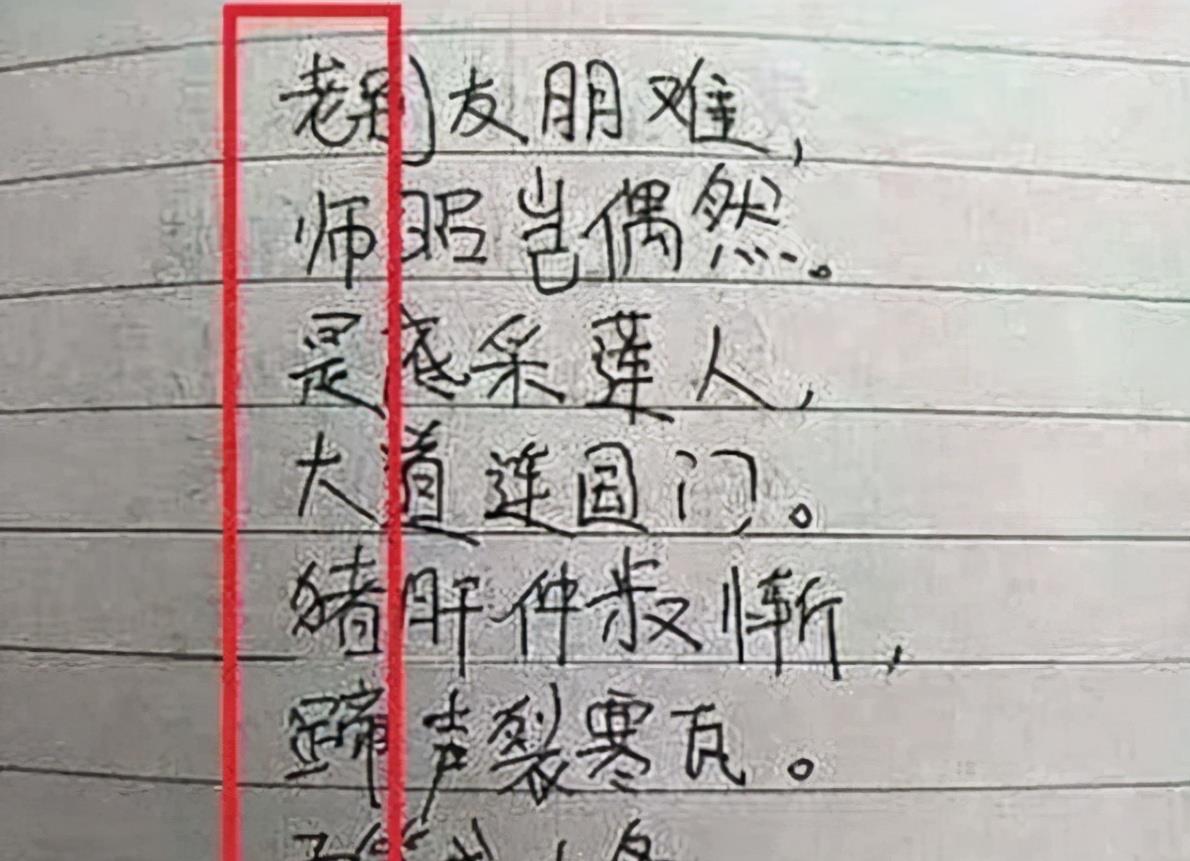 老到友朋难,
师昭岂偶然。
是底采莲人,
大道连国门。
猪肝仲叔惭,
蹄声裂寒瓦。